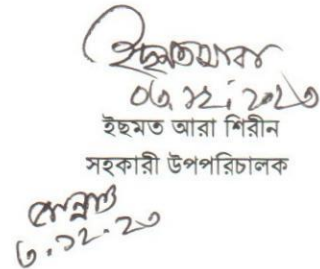 ইছমতআরা
০৬.১২.২০২৩
ইছমত আরা শিরীন
সহকারী উপপরিচালক
৬.১২.২৩